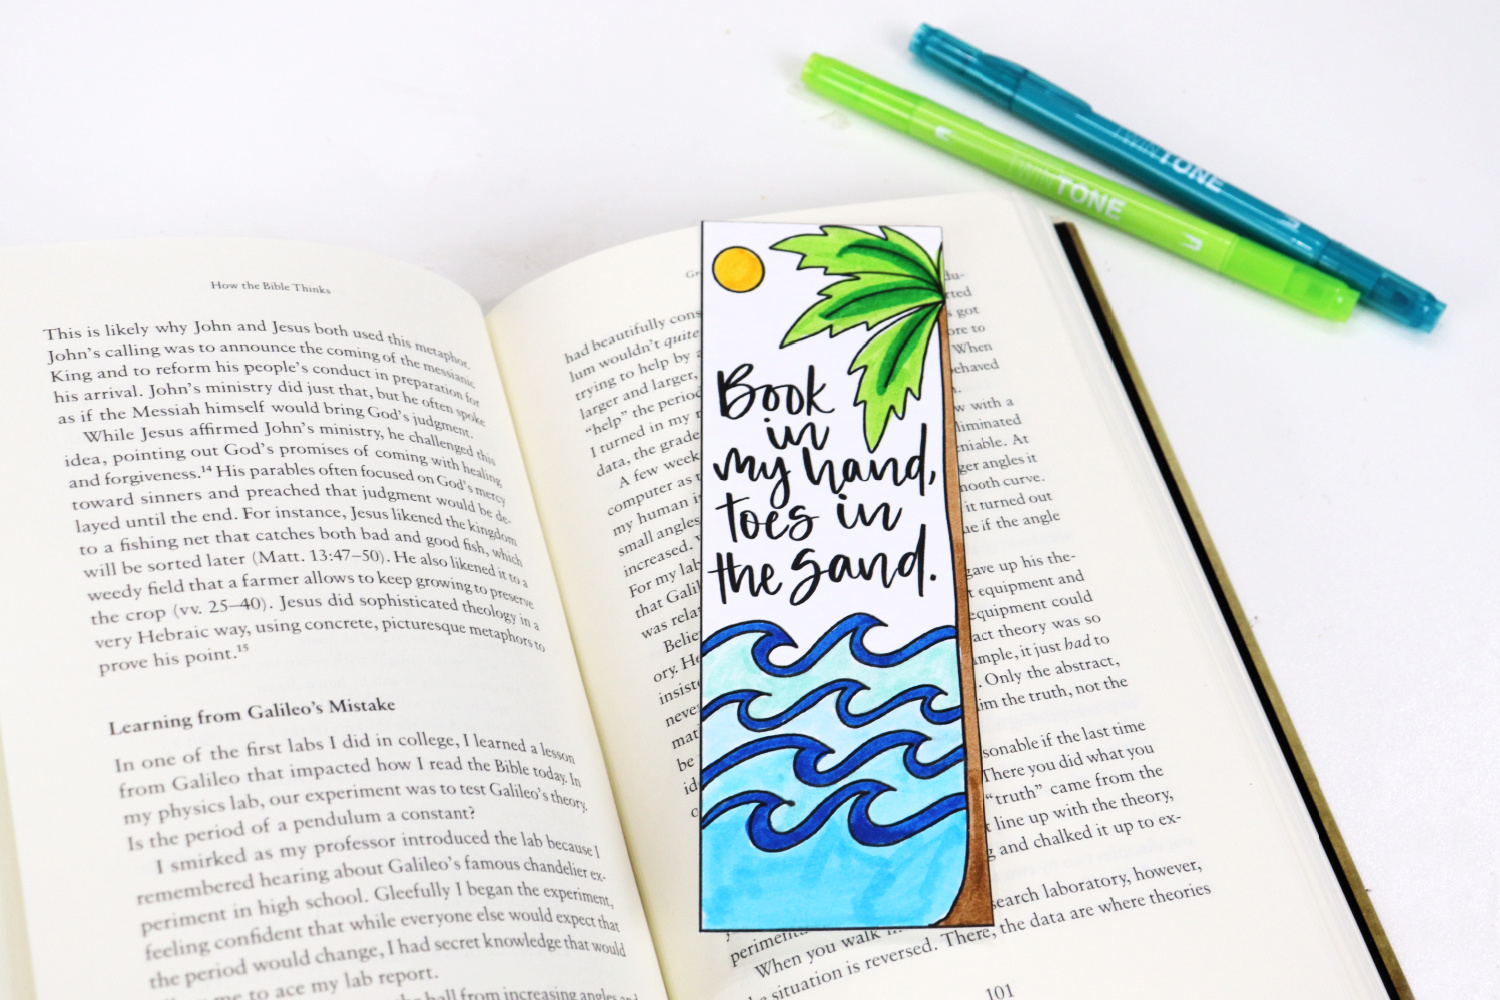 How the Bible Thinks
This is likely why John and Jesus both used this metaphor.
John's calling was to announce the coming of the messianic
King and to reform his people's conduct in preparation for
his arrival. John's ministry did just that, but he often spoke
as if the Messiah himself would bring God's judgment.
While Jesus affirmed John's ministry, he challenged this
idea, pointing out God's promises of coming with healing
and forgiveness.14 His parables often focused on God's mercy
toward sinners and preached that judgment would be de-
layed until the end. For instance, Jesus likened the kingdom
to a fishing net that catches both bad and good fish, which
will be sorted later (Matt. 13:47–50). He also likened it to a
weedy field that a farmer allows to keep growing to preserve
the crop (vv. 25–40). Jesus did sophisticated theology in a
very Hebraic way, using concrete, picturesque metaphors to
prove his point.15
Learning from Galileo's Mistake
In one of the first labs I did in college, I learned a lesson
from Galileo that impacted how I read the Bible today. In
my physics lab, our experiment was to test Galileo's theory.
Is the period of a pendulum a constant?
I smirked as my professor introduced the lab because I
remembered hearing about Galileo's famous chandelier ex-
periment in high school. Gleefully I began the experiment,
feeling confident that while everyone else would expect that
the period would change, I had secret knowledge that would
me to ace my lab report.
the ball from increasing angles and
had beautifully
lum wouldn't quite
trying to help by
larger and larger,
"help" the period
I turned in my
data, the grade
A few week
computer as
my human
small angles
increased.
For my lab
that Galil
was rela
Belie
ory. He
insist
neve
mat
be
Book
in
my hand,
toes in
the sand.
du-
got
ore to
When
w with a
At
ger angles it
curve.
it turned out
if the angle
gave up his the-
equipment and
equipment could
act theory was so
it just had to
Only the abstract,
the truth, not the
sonable if the last time
There you did what you
"truth" came from the
line up with the theory,
and chalked it up to ex-
search laboratory, however,
When you walk
situation is reversed. There, the data are where theories
101
TWINTONE
TWINTONE